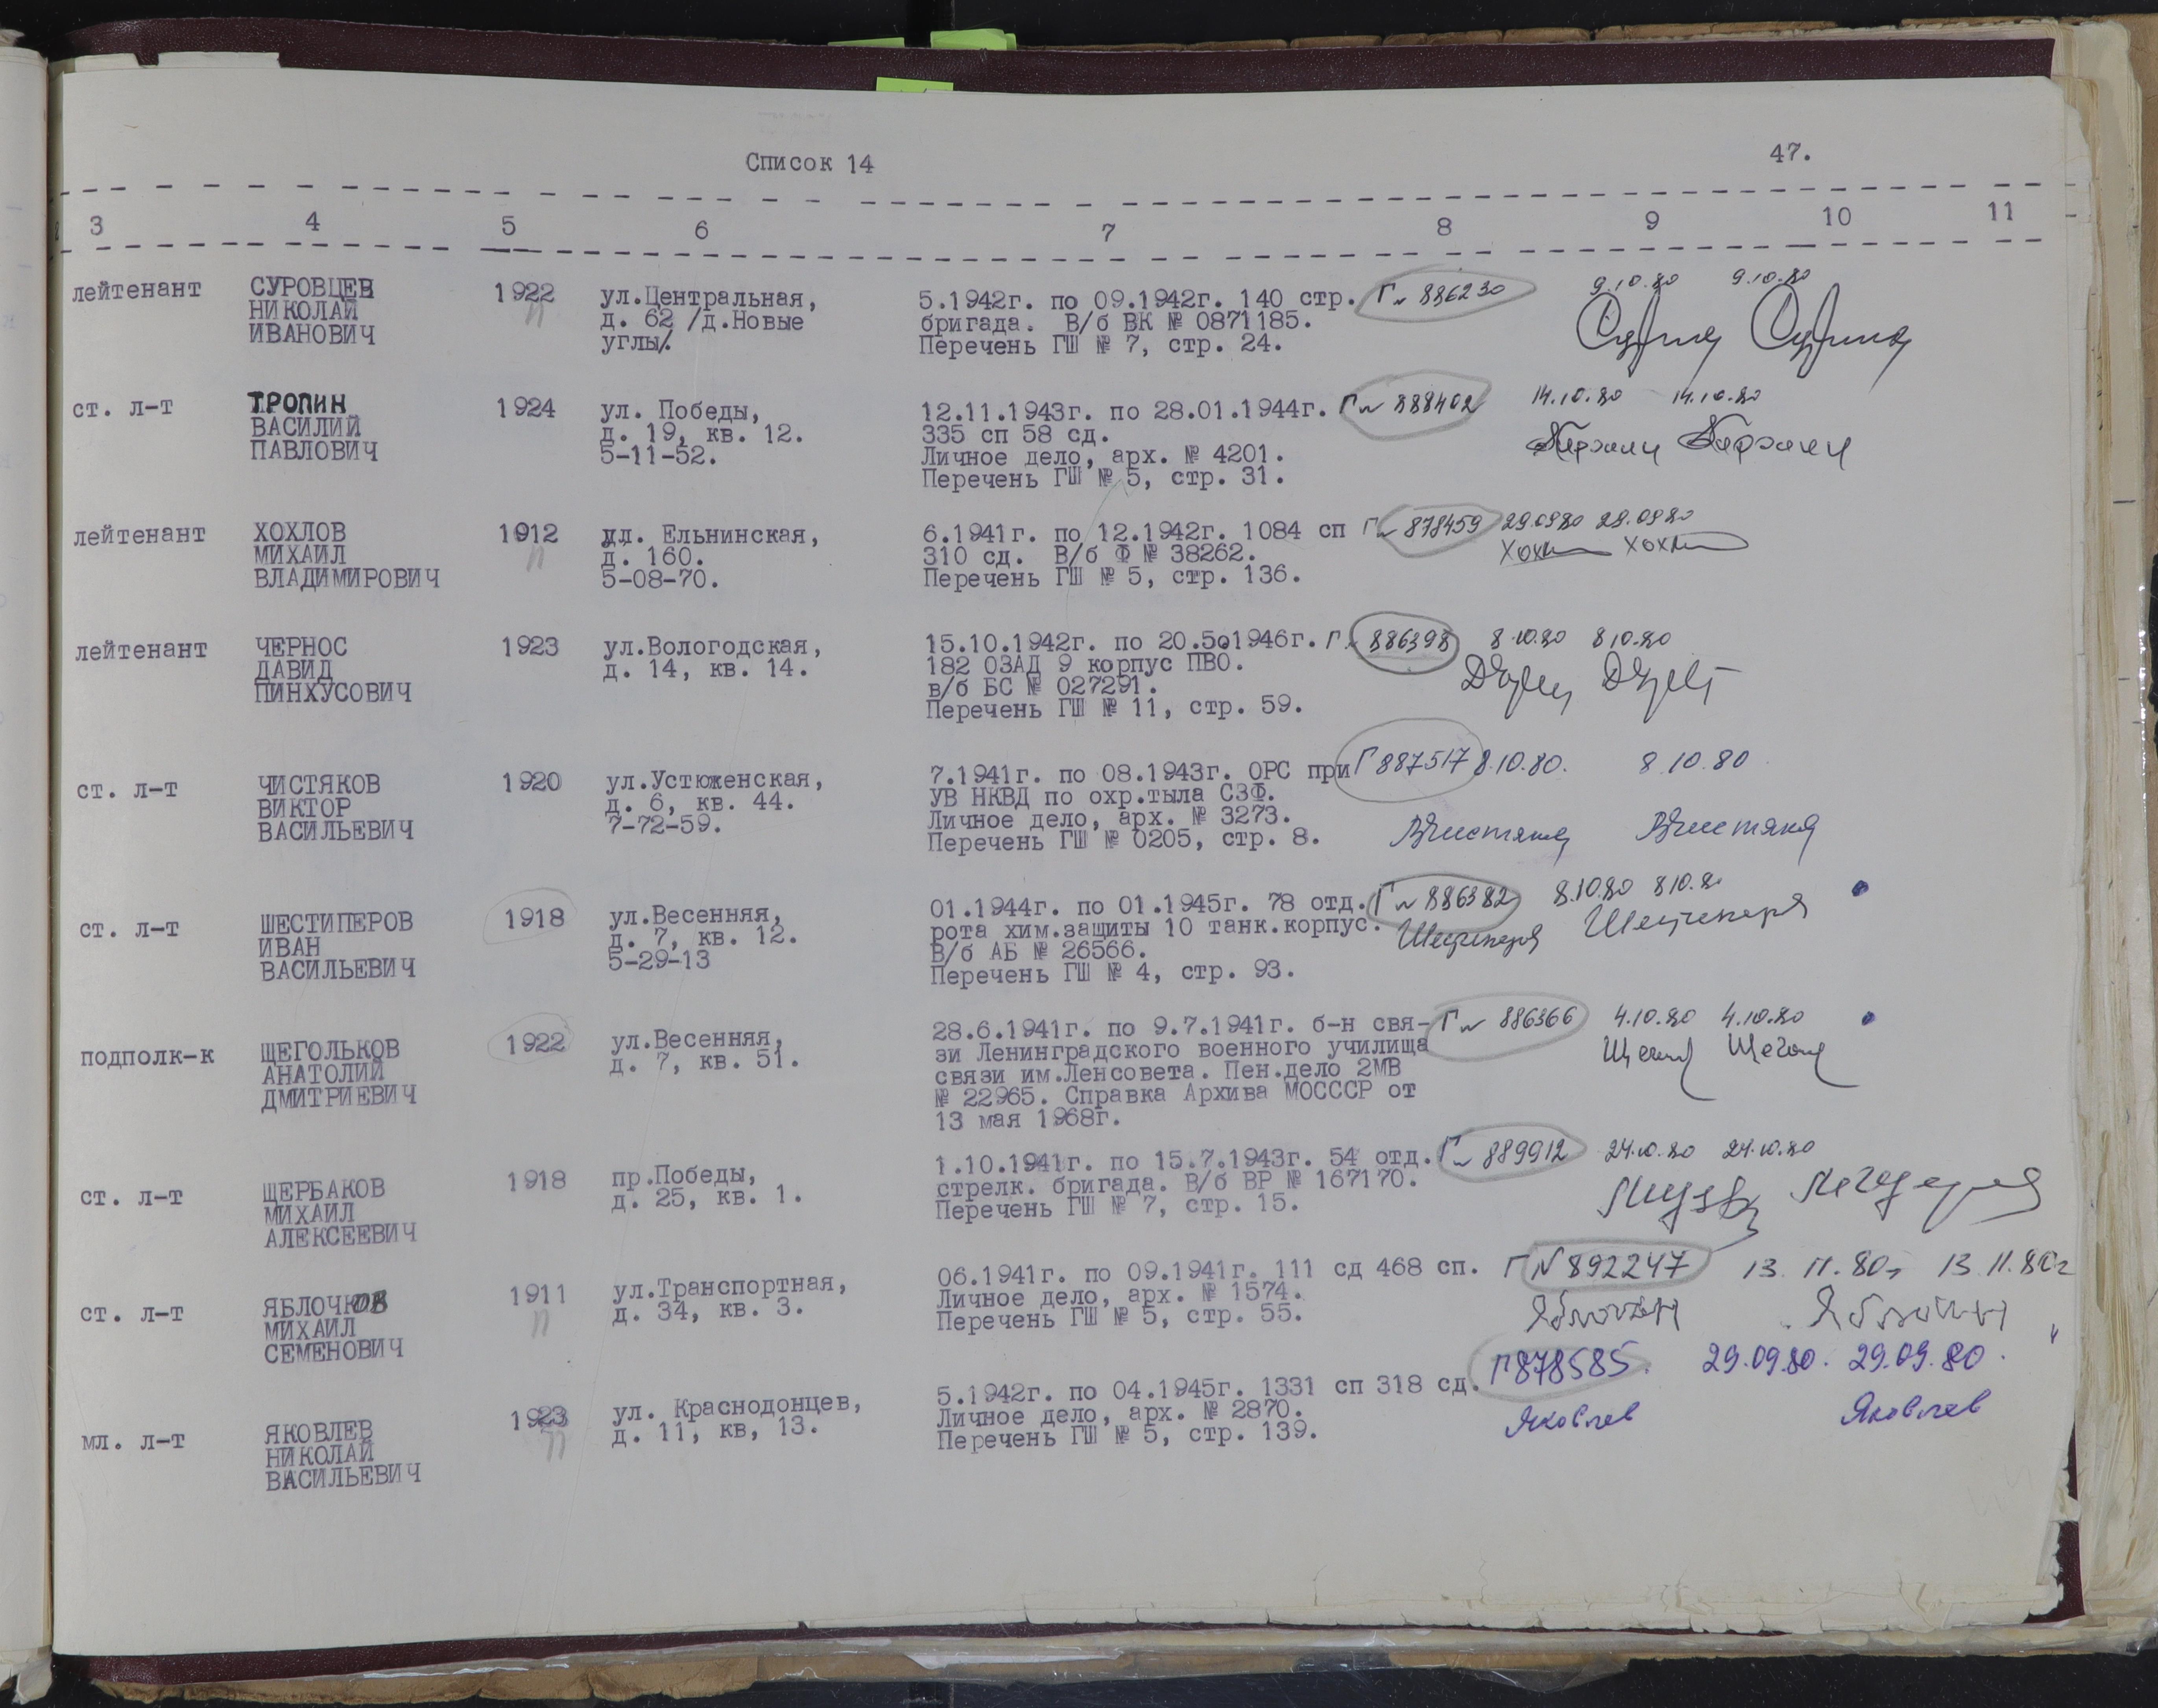 Список 14
47.
3 4 5 6 7 8 9 10 11
лейтенант СУРОВЦЕВ 1922 ул.Центральная, 5.1942г. по 09.1942г. 140 стр. Г № 886230 9.10.80 9.10.80
НИКОЛАЙ п д. 62 /д.Новые бригада. В/б ВК № 0871185.
ИВАНОВИЧ углы/. Перечень ГШ № 7, стр. 24.
ст. л-т ТРОПИН 1924 ул. Победы, 12.11.1943г. по 28.01.1944г. Г № 888402 14.10.80 14.10.80
ВАСИЛИЙ д. 19, кв. 12. 335 сп 58 сд.
ПАВЛОВИЧ 5-11-52. Личное дело, арх. № 4201.
Перечень ГШ № 5, стр. 31.
лейтенант ХОХЛОВ 1912 ул. Ельнинская, 6.1941г. по 12.1942г. 1084 сп Г № 878459 29.09.80 29.09.80
МИХАИЛ п д. 160. 310 сд. В/б Ф № 38262.
ВЛАДИМИРОВИЧ 5-08-70. Перечень ГШ № 5, стр. 136.
лейтенант ЧЕРНОС 1923 ул.Вологодская, 15.10.1942г. по 20.501946г. Г 886398 8.10.80 8.10.80
ДАВИД д. 14, кв. 14. 182 ОЗАД 9 корпус ПВО.
ПИНХУСОВИЧ в/б БС № 027291.
Перечень ГШ № 11, стр. 59.
ст. л-т ЧИСТЯКОВ 1920 ул.Устюженская, 7.1941г. по 08.1943г. ОРС при Г 887517 8.10.80. 8.10.80
ВИКТОР д. 6, кв. 44. УВ НКВД по охр.тыла СЗФ.
ВАСИЛЬЕВИЧ 7-72-59. Личное дело, арх. № 3273.
Перечень ГШ № 0205, стр. 8.
ст. л-т ШЕСТИПЕРОВ 1918 ул.Весенняя, 01.1944г. по 01.1945г. 78 отд. Г № 886382 8.10.80 8.10.80
ИВАН д. 7, кв. 12. рота хим.защиты 10 танк.корпус.
ВАСИЛЬЕВИЧ 5-29-13 В/б АБ № 26566.
Перечень ГШ № 4, стр. 93.
подполк-к ЩЕГОЛЬКОВ 1922 ул.Весенняя, 28.6.1941г. по 9.7.1941г. б-н свя- Г № 886366 4.10.80 4.10.80
АНАТОЛИЙ д. 7, кв. 51. зи Ленинградского военного училища
ДМИТРИЕВИЧ связи им.Ленсовета. Пен.дело 2МВ
№ 22965. Справка Архива МОСССР от
13 мая 1968г.
ст. л-т ЩЕРБАКОВ 1918 пр.Победы, 1.10.1941г. по 15.7.1943г. 54 отд. Г № 889912 24.10.80 24.10.80
МИХАИЛ д. 25, кв. 1. стрелк. бригада. В/б ВР № 167170.
АЛЕКСЕЕВИЧ Перечень ГШ № 7, стр. 15.
ст. л-т ЯБЛОЧКОВ 1911 ул.Транспортная, 06.1941г. по 09.1941г. 111 сд 468 сп. Г № 892247 13.11.80г 13.11.80г
МИХАИЛ п д. 34, кв. 3. Личное дело, арх. № 1574.
СЕМЕНОВИЧ Перечень ГШ № 5, стр. 55.
мл. л-т ЯКОВЛЕВ 1923 ул. Краснодонцев, 5.1942г. по 04.1945г. 1331 сп 318 сд. Г878585. 29.09.80. 29.09.80.
НИКОЛАЙ п д. 11, кв, 13. Личное дело, арх. № 2870. Яковлев Яковлев
ВАСИЛЬЕВИЧ Перечень ГШ № 5, стр. 139.